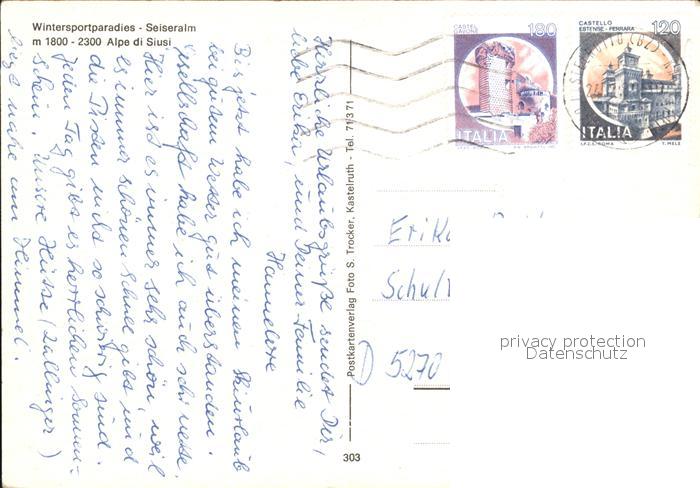 Wintersportparadies - Seiseralm
m 1800 - 2300 Alpe di Siusi
Herzliche Urlaubsgrüße sendet Dir,
liebe Erika, und Deiner Familie
Hannelore
Bis jetzt habe ich meinen Skiurlaub
bei gutem Wetter gut überstanden.
habe ich auch schi nette.
Hier ist es immer sehr schön, weil
es immer schönen Schnee gibt und
die Pisten nicht so schwierig sind.
Jeden Tag gibt es herrlichen Sonnen-
schein. Unsere Hütte (Zallinger)
liegt nahe am Himmel.
Postkartenverlag Foto S. Trocker, Kastelruth - Tel. 71371
303
CASTEL
180
ITALIA
CASTELLO
ESTENSE - FERRARA
120
ITALIA
I.P.Z.S. ROMA
T. MELE
Erika
Schul
D 5270
privacy protection
Datenschutz